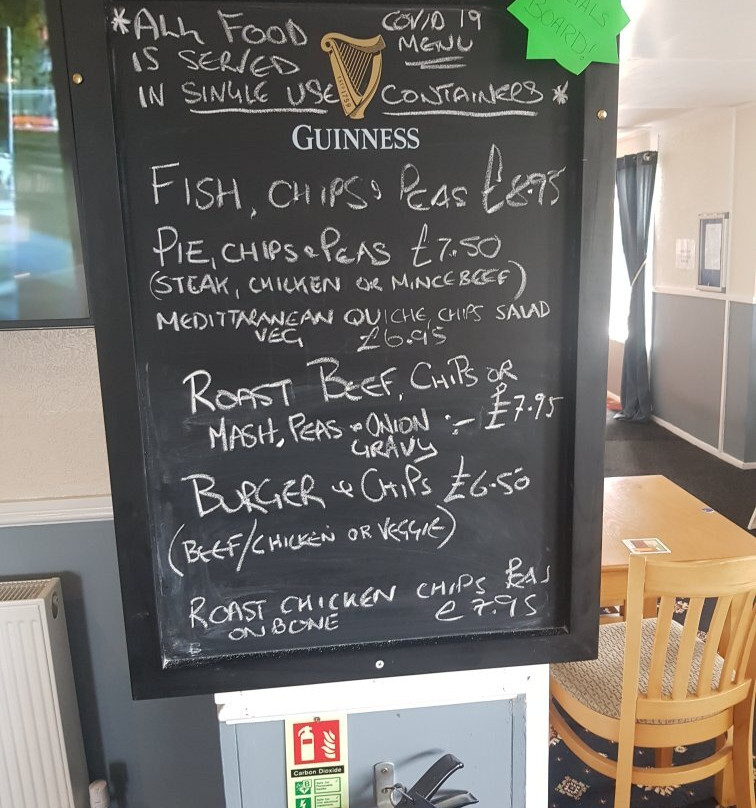 *ALL FOOD
IS SERVED
IN SINGLE USE CONTAINERS *
COVID 19
MENU
BOARD!
GUINNESS
FISH, CHIPS & PEAS £8.95
PIE, CHIPS & PEAS £7.50
(STEAK, CHICKEN OR MINCE BEEF)
MEDITTARANEAN QUICHE, CHIPS SALAD
VEG £6.95
ROAST BEEF, CHIPS OR
MASH, PEAS & ONION :- £7.95
GRAVY
BURGER & CHIPS £6.50
(BEEF/CHICKEN OR VEGGIE)
ROAST CHICKEN CHIPS PEAS
ON BONE £7.95
Carbon Dioxide